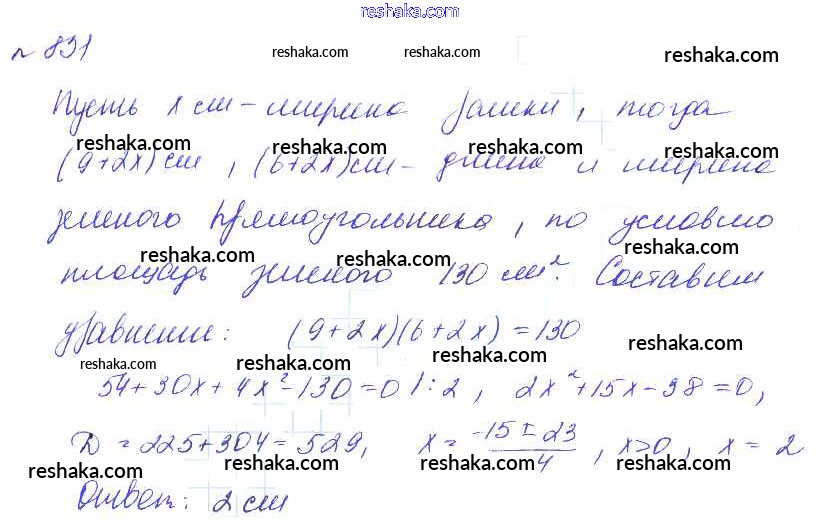 reshaka.com
№ 831
reshaka.com reshaka.com reshaka.com
Пусть x см – ширина рамки, тогда
reshaka.com reshaka.com reshaka.com
(9+2x) см, (6+2x) см – длина и ширина
зеленого прямоугольника, по условию
reshaka.com reshaka.com reshaka.com
площадь зеленого 130 см². Составим
уравнение: (9+2x)(6+2x) = 130
reshaka.com reshaka.com reshaka.com
54+30x+4x²-130=0 |:2, 2x²+15x-38=0,
D = 225+304 = 529, x = (-15±23)/4, x>0, x = 2
reshaka.com reshaka.com reshaka.com
Ответ: 2 см